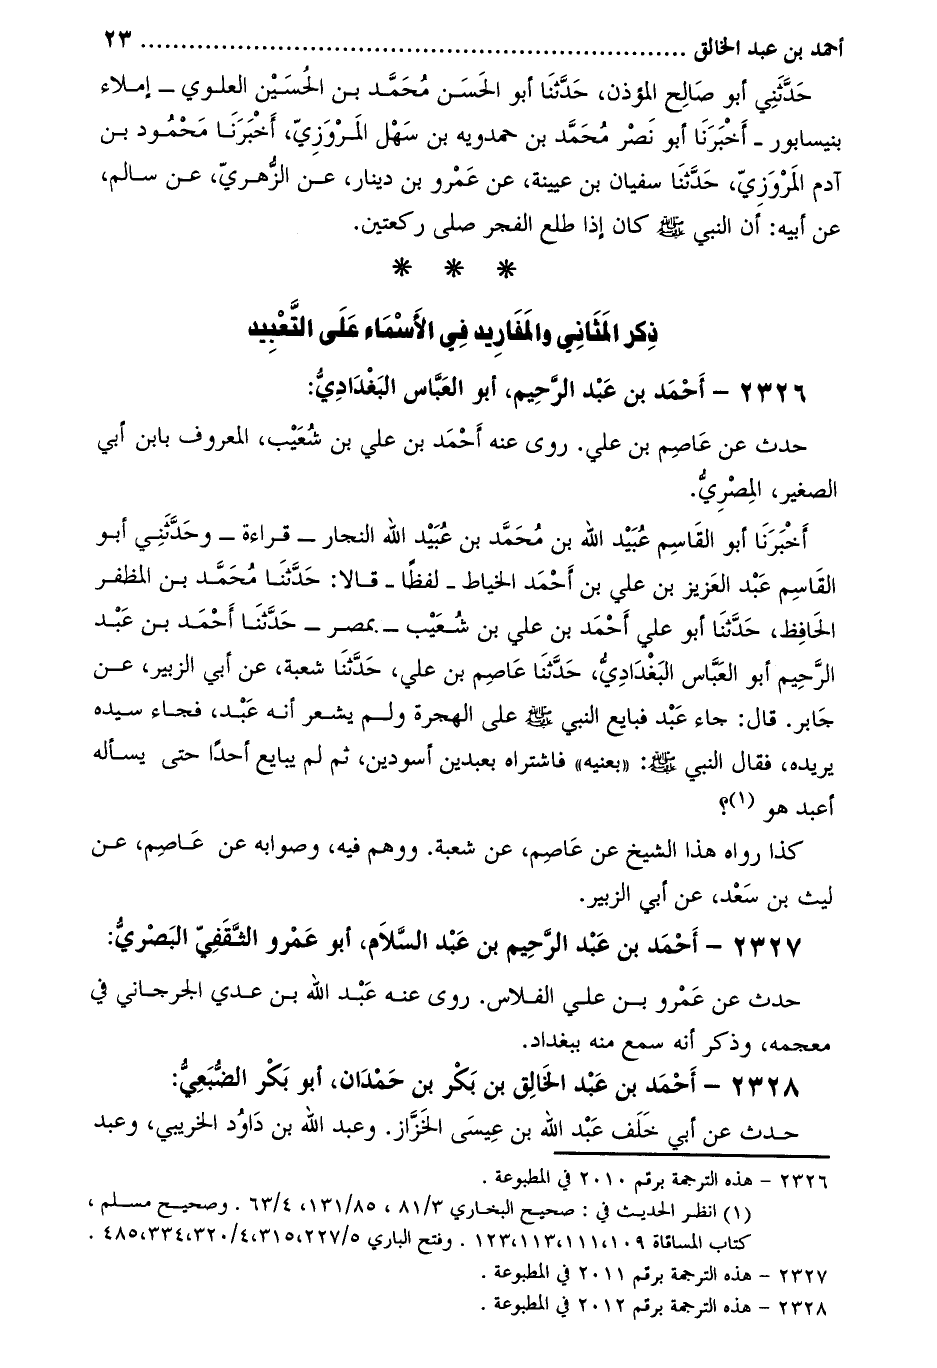 أحمد بن عبد الخالق ................................................................ ٢٣
حَدَّثَنِي أبو صَالِح المؤذن، حَدَّثَنَا أبو الحَسَن مُحَمَّد بن الحُسَيْن العلوي ـ إملاء
بنيسابور ـ أَخْبَرَنَا أبو نَصْر مُحَمَّد بن حمدويه بن سَهْل المَرْوَزِيّ، أَخْبَرَنَا مَحْمُود بن
آدم المَرْوَزِيّ، حَدَّثَنَا سفيان بن عيينة، عن عَمْرو بن دينار، عن الزُّهريّ، عن سالم،
عن أبيه: أن النبي ﷺ كان إذا طلع الفجر صلى ركعتين.
* * *
ذِكر المَثَانِي والمَفَارِيد فِي الأَسْمَاء عَلَى التَّعْبِيد
٢٣٢٦ – أَحْمَد بن عَبْد الرَّحِيم، أبو العَبَّاس البَغْدَادِيُّ:
حدث عن عَاصِم بن علي. روى عنه أَحْمَد بن علي بن شُعَيْب، المعروف بابن أبي
الصغير، المِصْرِيُّ.
أَخْبَرَنَا أبو القَاسِم عُبَيْد الله بن مُحَمَّد بن عُبَيْد الله النجار ـ قراءة ـ وحَدَّثَنِي أبو
القَاسِم عَبْد العَزِيز بن علي بن أَحْمَد الخياط ـ لفظًا ـ قالا: حَدَّثَنَا مُحَمَّد بن المظفر
الحَافِظ، حَدَّثَنَا أبو علي أَحْمَد بن علي بن شُعَيْب ـ بمصر ـ حَدَّثَنَا أَحْمَد بن عَبْد
الرَّحِيم أبو العَبَّاس البَغْدَادِيُّ، حَدَّثَنَا عَاصِم بن علي، حَدَّثَنَا شعبة، عن أبي الزبير، عن
جَابر. قال: جاء عَبْد فبايع النبي ﷺ على الهجرة ولم يشعر أنه عَبْد، فجاء سيده
يريده، فقال النبي ﷺ: «بعنيه» فاشتراه بعبدين أسودين، ثم لم يبايع أحدًا حتى يسأله
أعبد هو (١)؟
كذا رواه هذا الشيخ عن عَاصِم، عن شعبة. ووهم فيه، وصوابه عن عَاصِم، عن
ليث بن سَعْد، عن أبي الزبير.
٢٣٢٧ – أَحْمَد بن عَبْد الرَّحِيم بن عَبْد السَّلاَم، أبو عَمْرو الثَّقَفِيّ البَصْرِيُّ:
حدث عن عَمْرو بن علي الفلاس. روى عنه عَبْد الله بن عدي الجرجاني في
معجمه، وذكر أنه سمع منه ببغداد.
٢٣٢٨ – أَحْمَد بن عَبْد الخَالِق بن بَكْر بن حَمْدَان، أبو بَكْر الضُّبَعِيُّ:
حدث عن أبي خَلَف عَبْد الله بن عِيسَى الخَزَّاز. وعبد الله بن دَاوُد الخريبي، وعبد
٢٣٢٦ – هذه الترجمة برقم ٢٠١٠ في المطبوعة .
(١) انظر الحديث في : صحيح البخاري ٨١/٣ ، ١٣١/٨٥، ٦٣/٤ . وصحيح مسلم ،
كتاب المساقاة ١٠٩، ١١١، ١١٣، ١٢٣ . وفتح الباري ٢٢٧/٥، ٣١٥، ٣٢٠/٤، ٣٣٤، ٤٨٥ .
٢٣٢٧ – هذه الترجمة برقم ٢٠١١ في المطبوعة .
٢٣٢٨ – هذه الترجمة برقم ٢٠١٢ في المطبوعة .